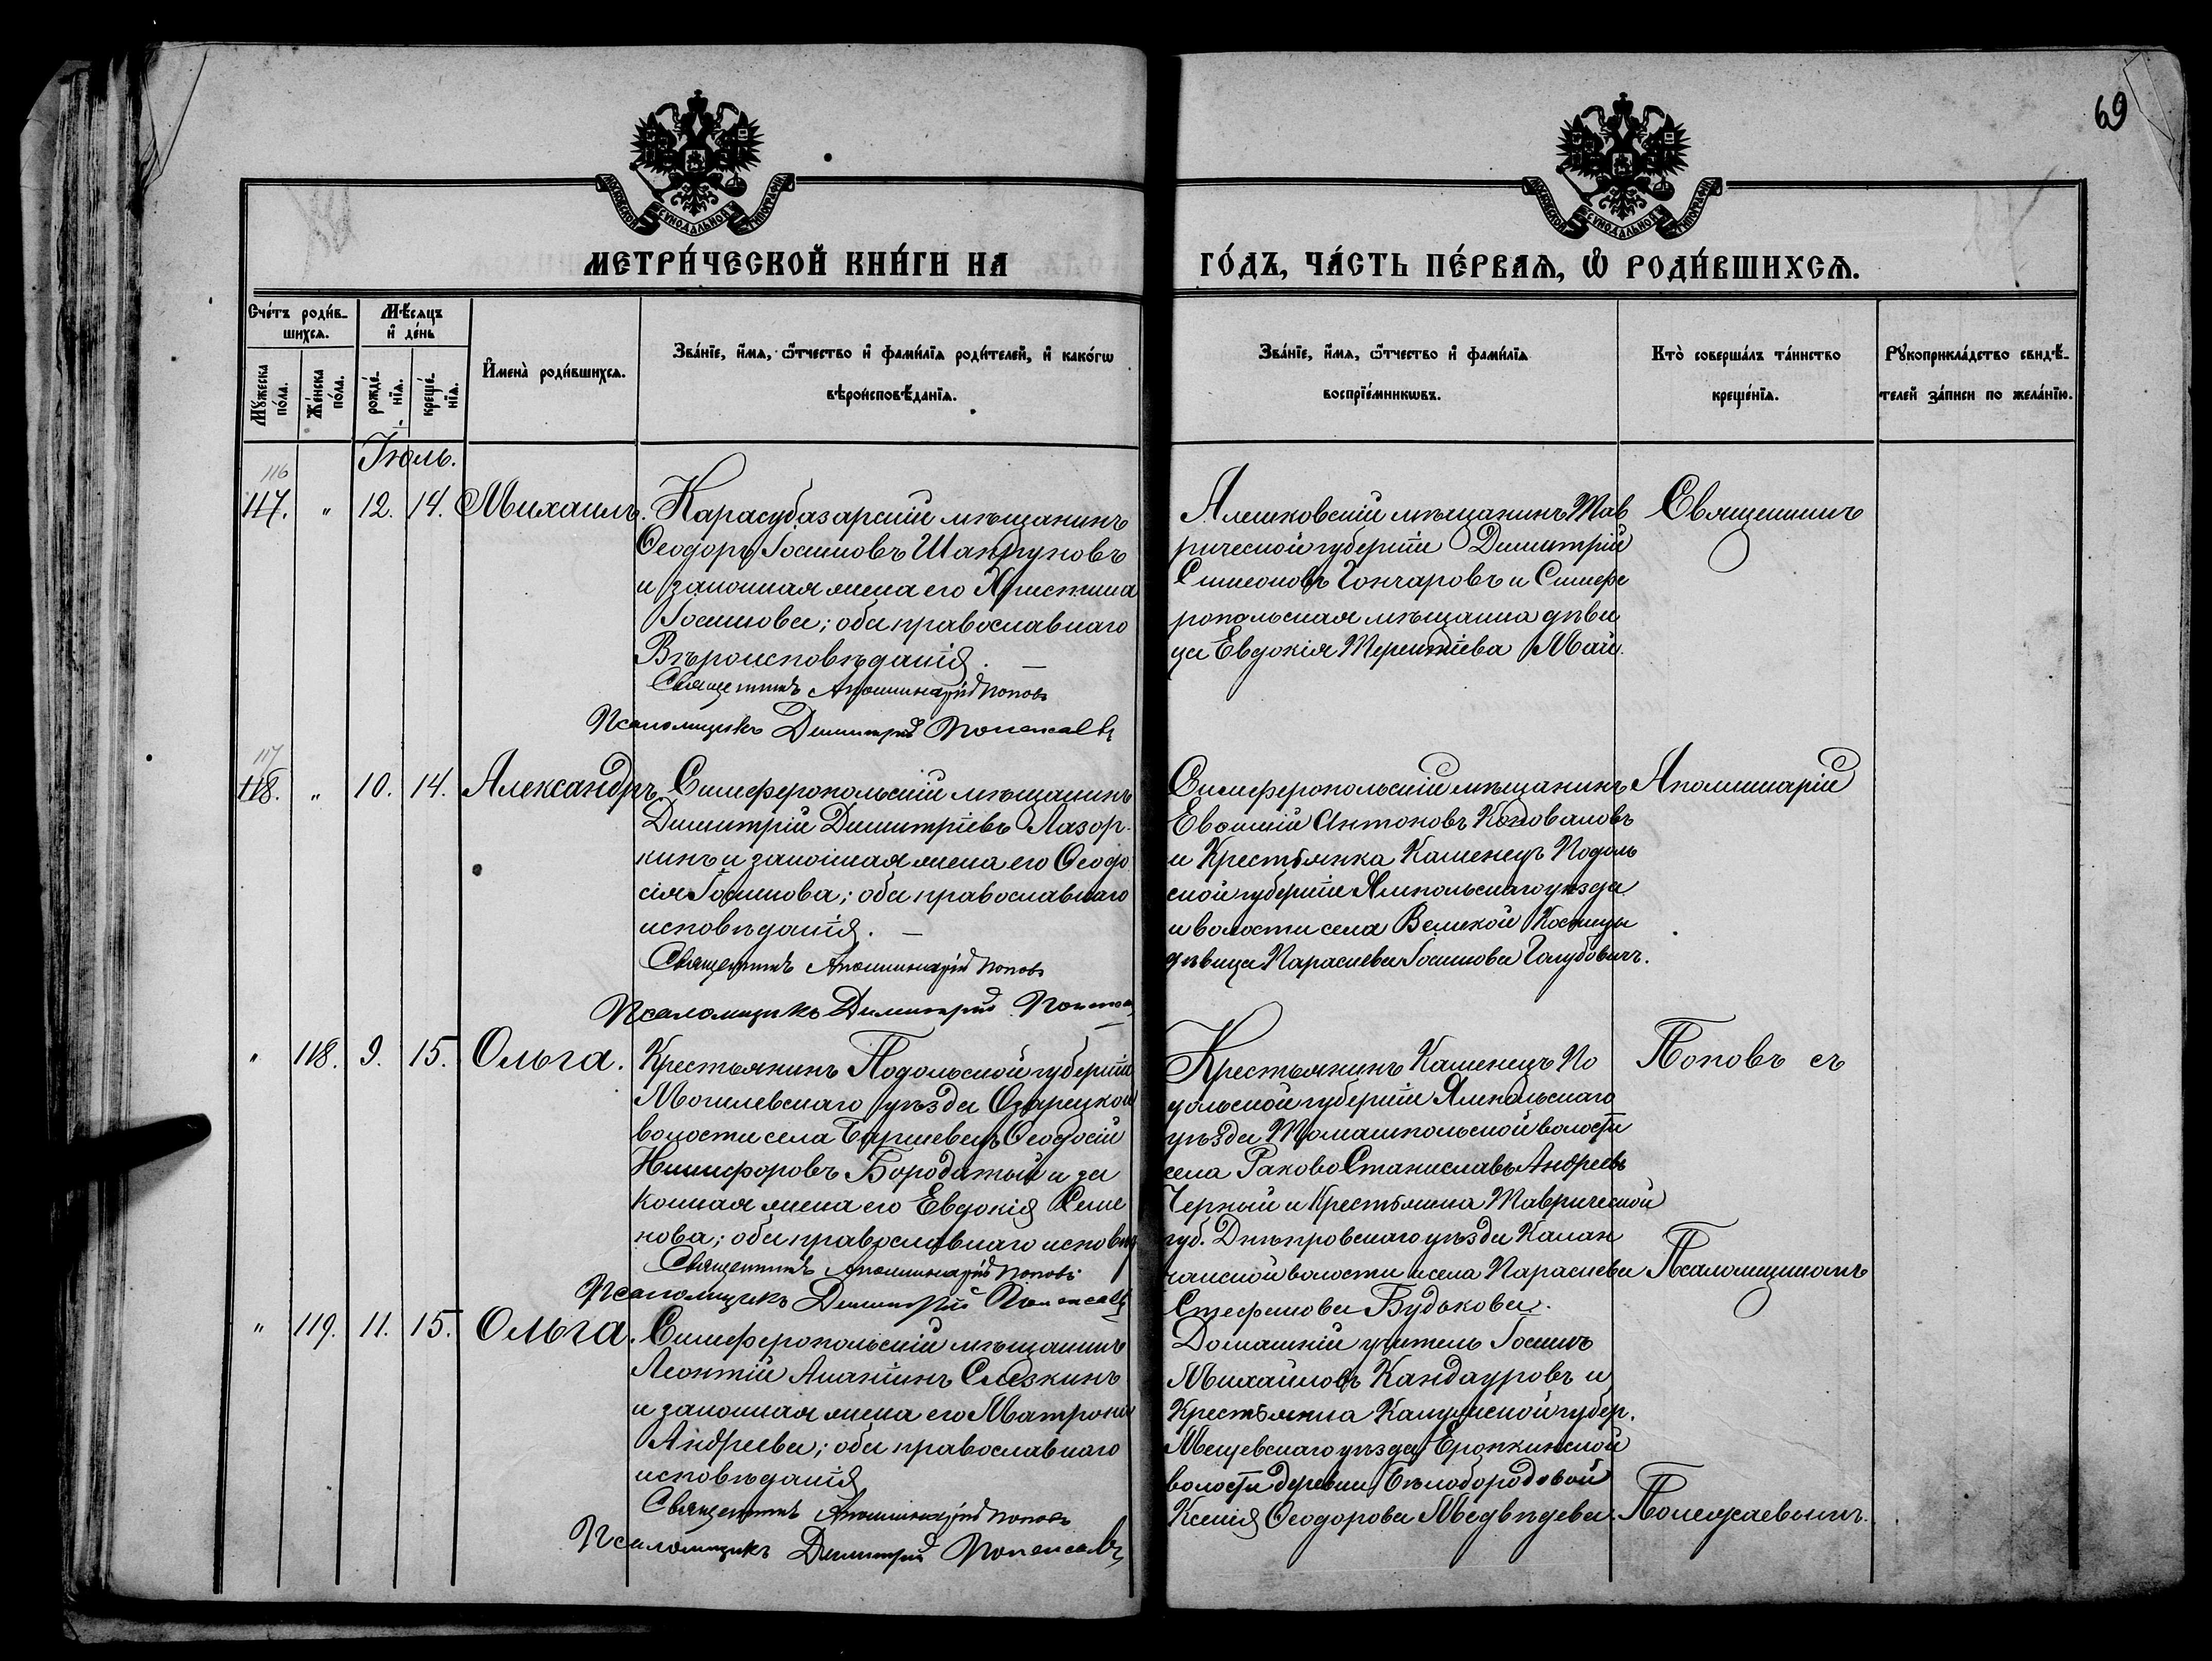 69
МОСКОВСКОЙ СѴНОДАЛЬНОЙ ТИПОГРАФІИ
МОСКОВСКОЙ СѴНОДАЛЬНОЙ ТИПОГРАФІИ
МЕТРИ́ЧЕСКОЙ КНИ́ГИ НА
ГО́ДЪ, ЧА́СТЬ ПЕ́РВАѦ, Ѡ҆ РОДИ́ВШИХСѦ.
Сче́тъ роди́в-
шихсѧ.
Мꙋ́жеска по́ла.
Же́нска по́ла.
Мѣ́сѧцъ
и҆ де́нь
рожде́-нїѧ.
креще́-нїѧ.
И҆мена̀ роди́вшихсѧ.
Зва́нїе, и҆́мѧ, ѻ҆́тчество и҆ фами́лїѧ роди́телей, и҆ како́гѡ
вѣроисповѣ́данїѧ.
Зва́нїе, и҆́мѧ, ѻ҆́тчество и҆ фами́лїѧ
воспрїе́мникѡвъ.
Кто̀ соверша́лъ та́инство
креще́нїѧ.
Рꙋкоприкла́дство свидѣ́-
телей за́писи по жела́нїю.
Іюль.
116
117. " 12. 14. Михаилъ.
Карасубазарскій мѣщанинъ
Ѳеодоръ Іосифовъ Шандруновъ
и законная жена его Христина
Іосифова; оба православнаго
Вѣроисповѣданія. —
Священникъ Аполлинарій Поповъ
Псаломщикъ Димитрій
Алешковскій мѣщанинъ Тав
рической губерніи Димитрій
Симеоновъ Гончаровъ и Симфе
ропольская мѣщанка дѣви
ца Евдокія Терентіева Май.
Священникъ
117
118. " 10. 14. Александръ.
Симферопольскій мѣщанинъ
Димитрій Димитріевъ Лазор-
кинъ и законная жена его Ѳеодо
сія Іосифова; оба православнаго
исповѣданія. —
Священникъ Аполлинарій Поповъ
Псаломщикъ Димитрій
Симферопольскій мѣщанинъ
Евфимій Антоновъ Коноваловъ
и Крестьянка Каменецъ Подоль
ской губерніи Ямпольскаго уѣзда
и волости села Великой Косницы
дѣвица Параскева Іосифова Голубовичъ.
Аполлинарій
" 118. 9. 15. Ольга.
Крестьянинъ Подольской губерніи
Могилевскаго уѣзда Озарецкой
волости села Ѳеодосій
Никифоровъ Бородатый и за
конная жена его Евдокія Семе
нова; оба православнаго исповѣд
Священникъ Аполлинарій Поповъ
Псаломщикъ Димитрій
Крестьянинъ Каменецъ По
дольской губерніи Ямпольскаго
уѣзда Томашпольской волости
села Раково Станиславъ Андреевъ
Черный и Крестьянка Таврической
губ. Днѣпровскаго уѣзда Калан
чакской волости и села Параскева
Стефанова Будькова.
Поповъ съ
Псаломщикомъ
" 119. 11. 15. Ольга.
Симферопольскій мѣщанинъ
Леонтій Ананіинъ Слезкинъ
и законная жена его Матрона
Андреева; оба православнаго
исповѣданія
Священникъ Аполлинарій Поповъ
Псаломщикъ Димитрій
Домашній учитель Іосифъ
Михайловъ Кандауровъ и
Крестьянка Калужской губер.
Мещевскаго уѣзда Еропкинской
волости деревни Бѣлобородовой
Ксенія Ѳеодорова Медвѣдева.